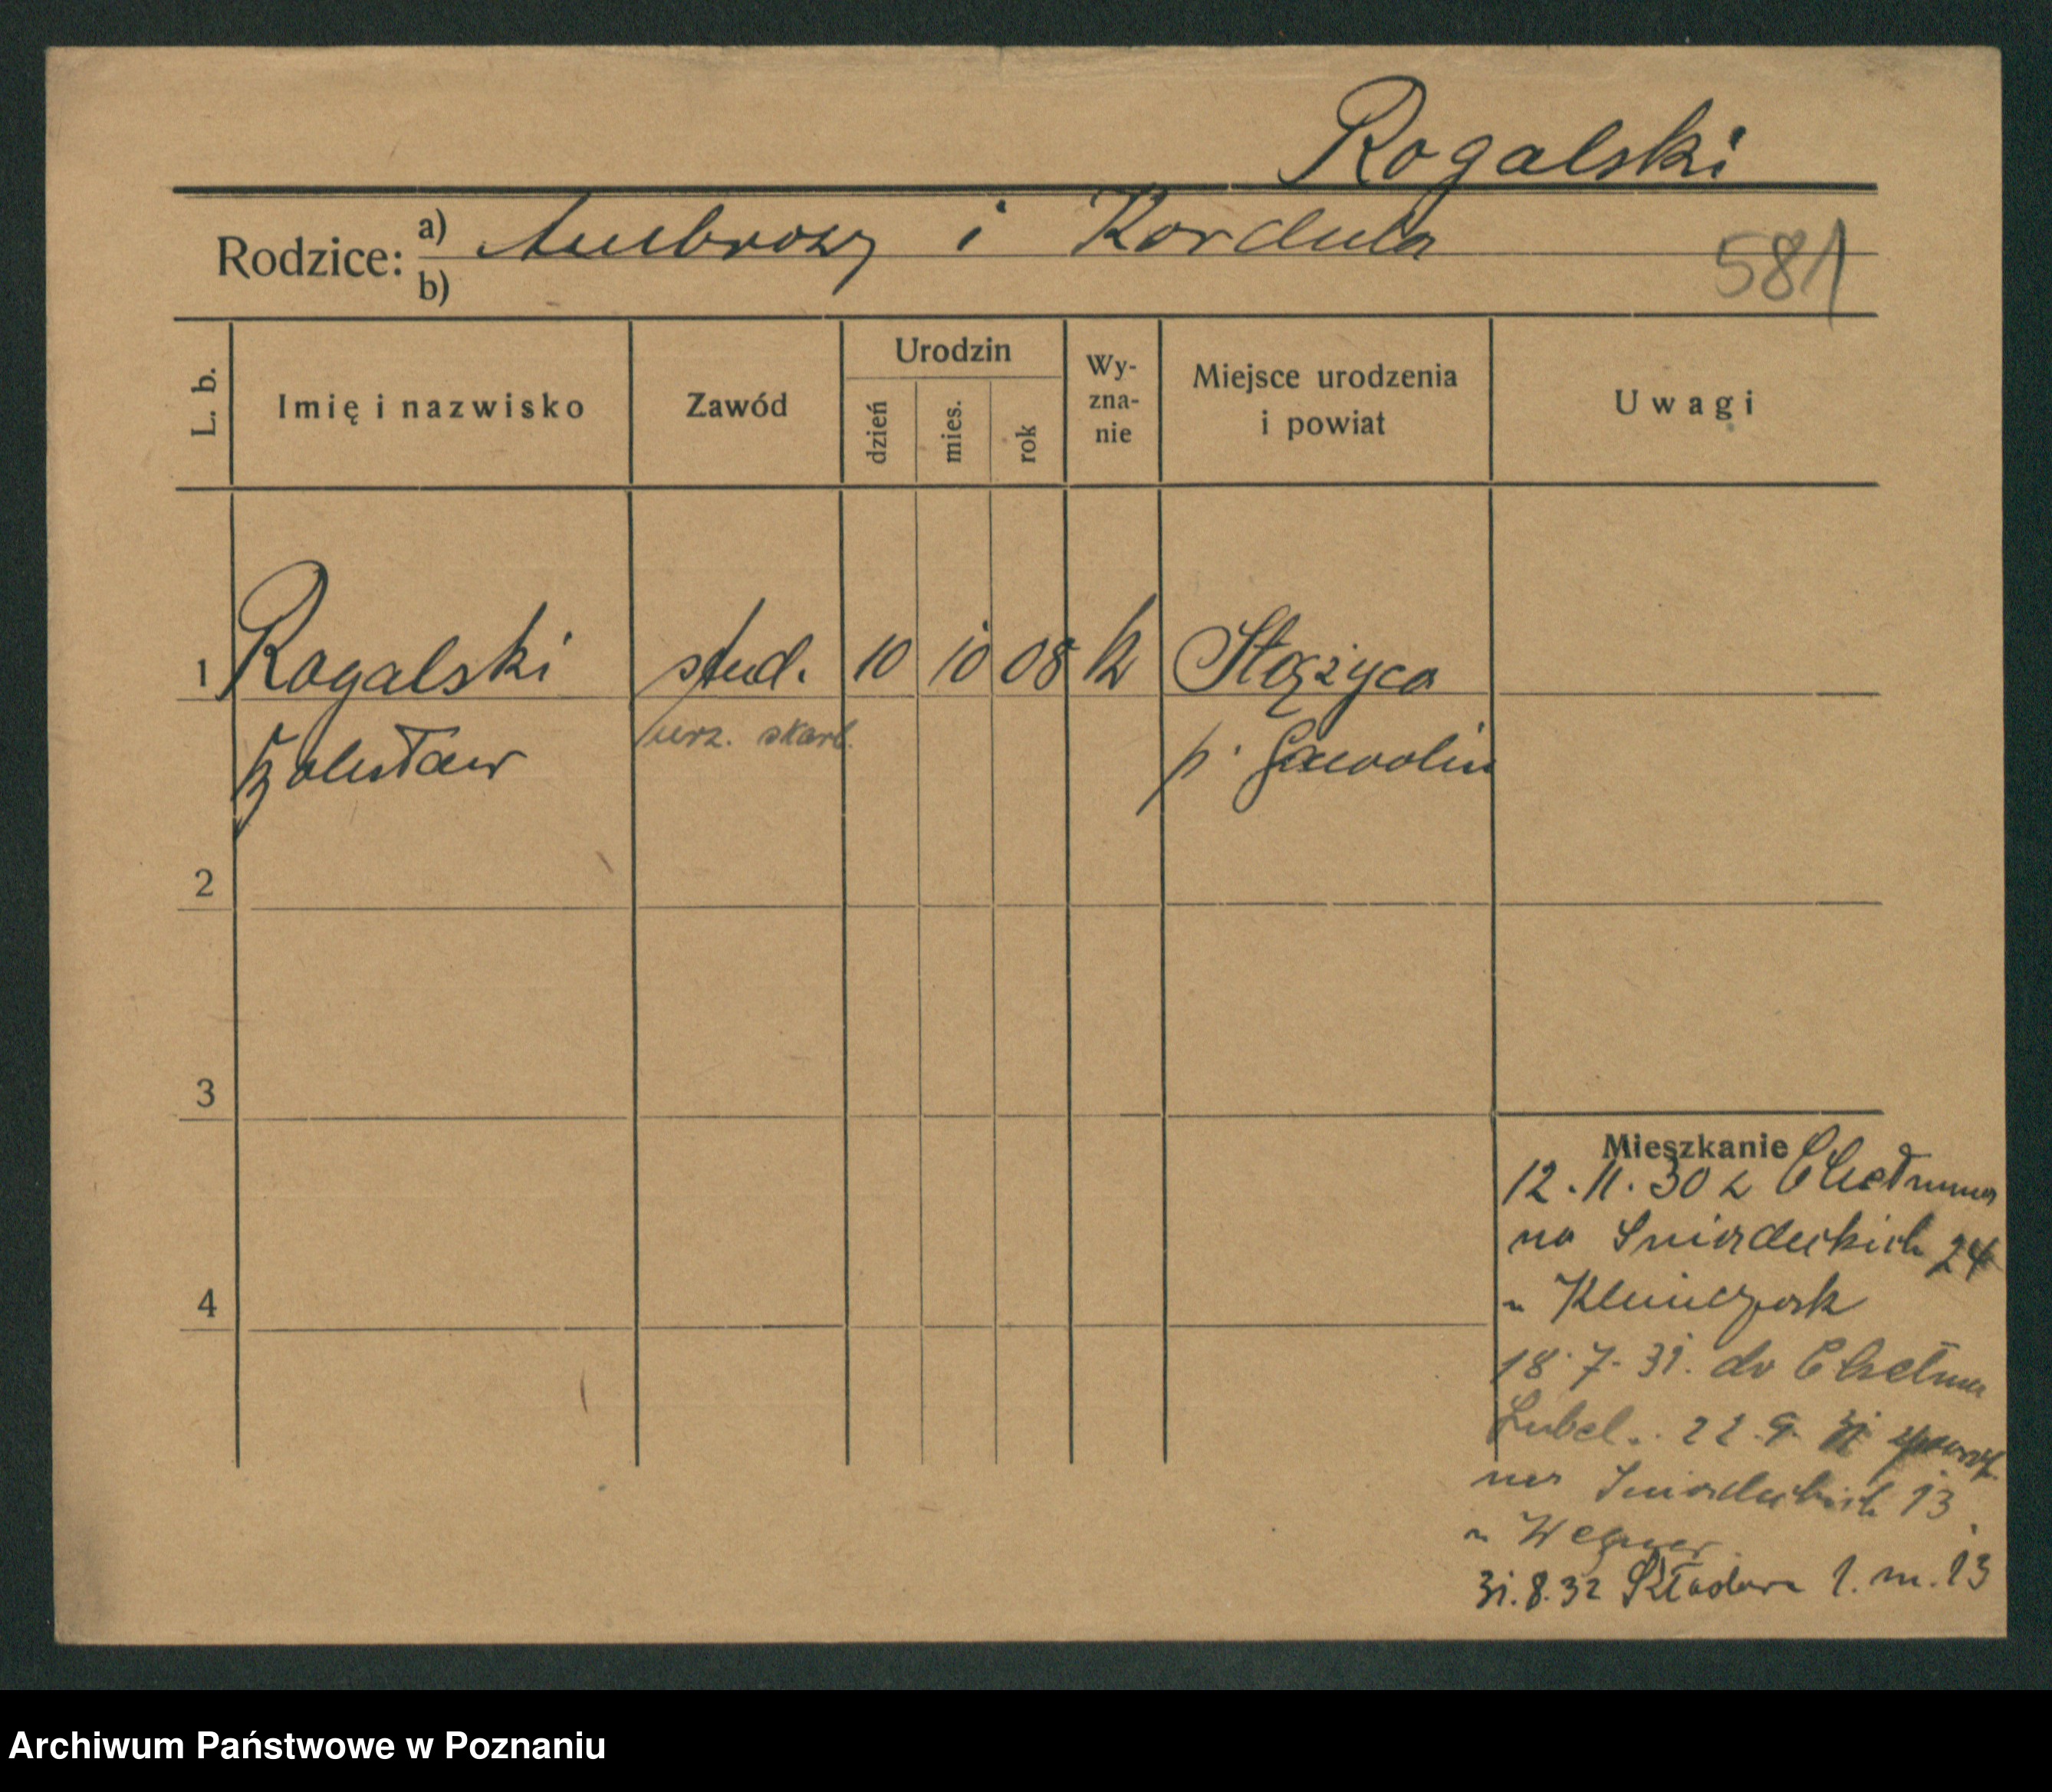 Rogalski
Rodzice: a) Ambroży i Kordula
b)
581
L. b.
Imię i nazwisko
Zawód
Urodzin
dzień
mies.
rok
Wy-
zna-
nie
Miejsce urodzenia
i powiat
Uwagi
1 Rogalski stud. 10 10 08 k Stężyca
Bolesław urz. skarb. p. Garwolin
2
3
4
Mieszkanie
12.11.30 z Chełmna
na Śniadeckich 24
u
18.7.31. do Chełma
Lubel. 22.9. 31
na Śniadeckich 13
u Wegner
31.8.32 Składowa 1. m. 13
Archiwum Państwowe w Poznaniu